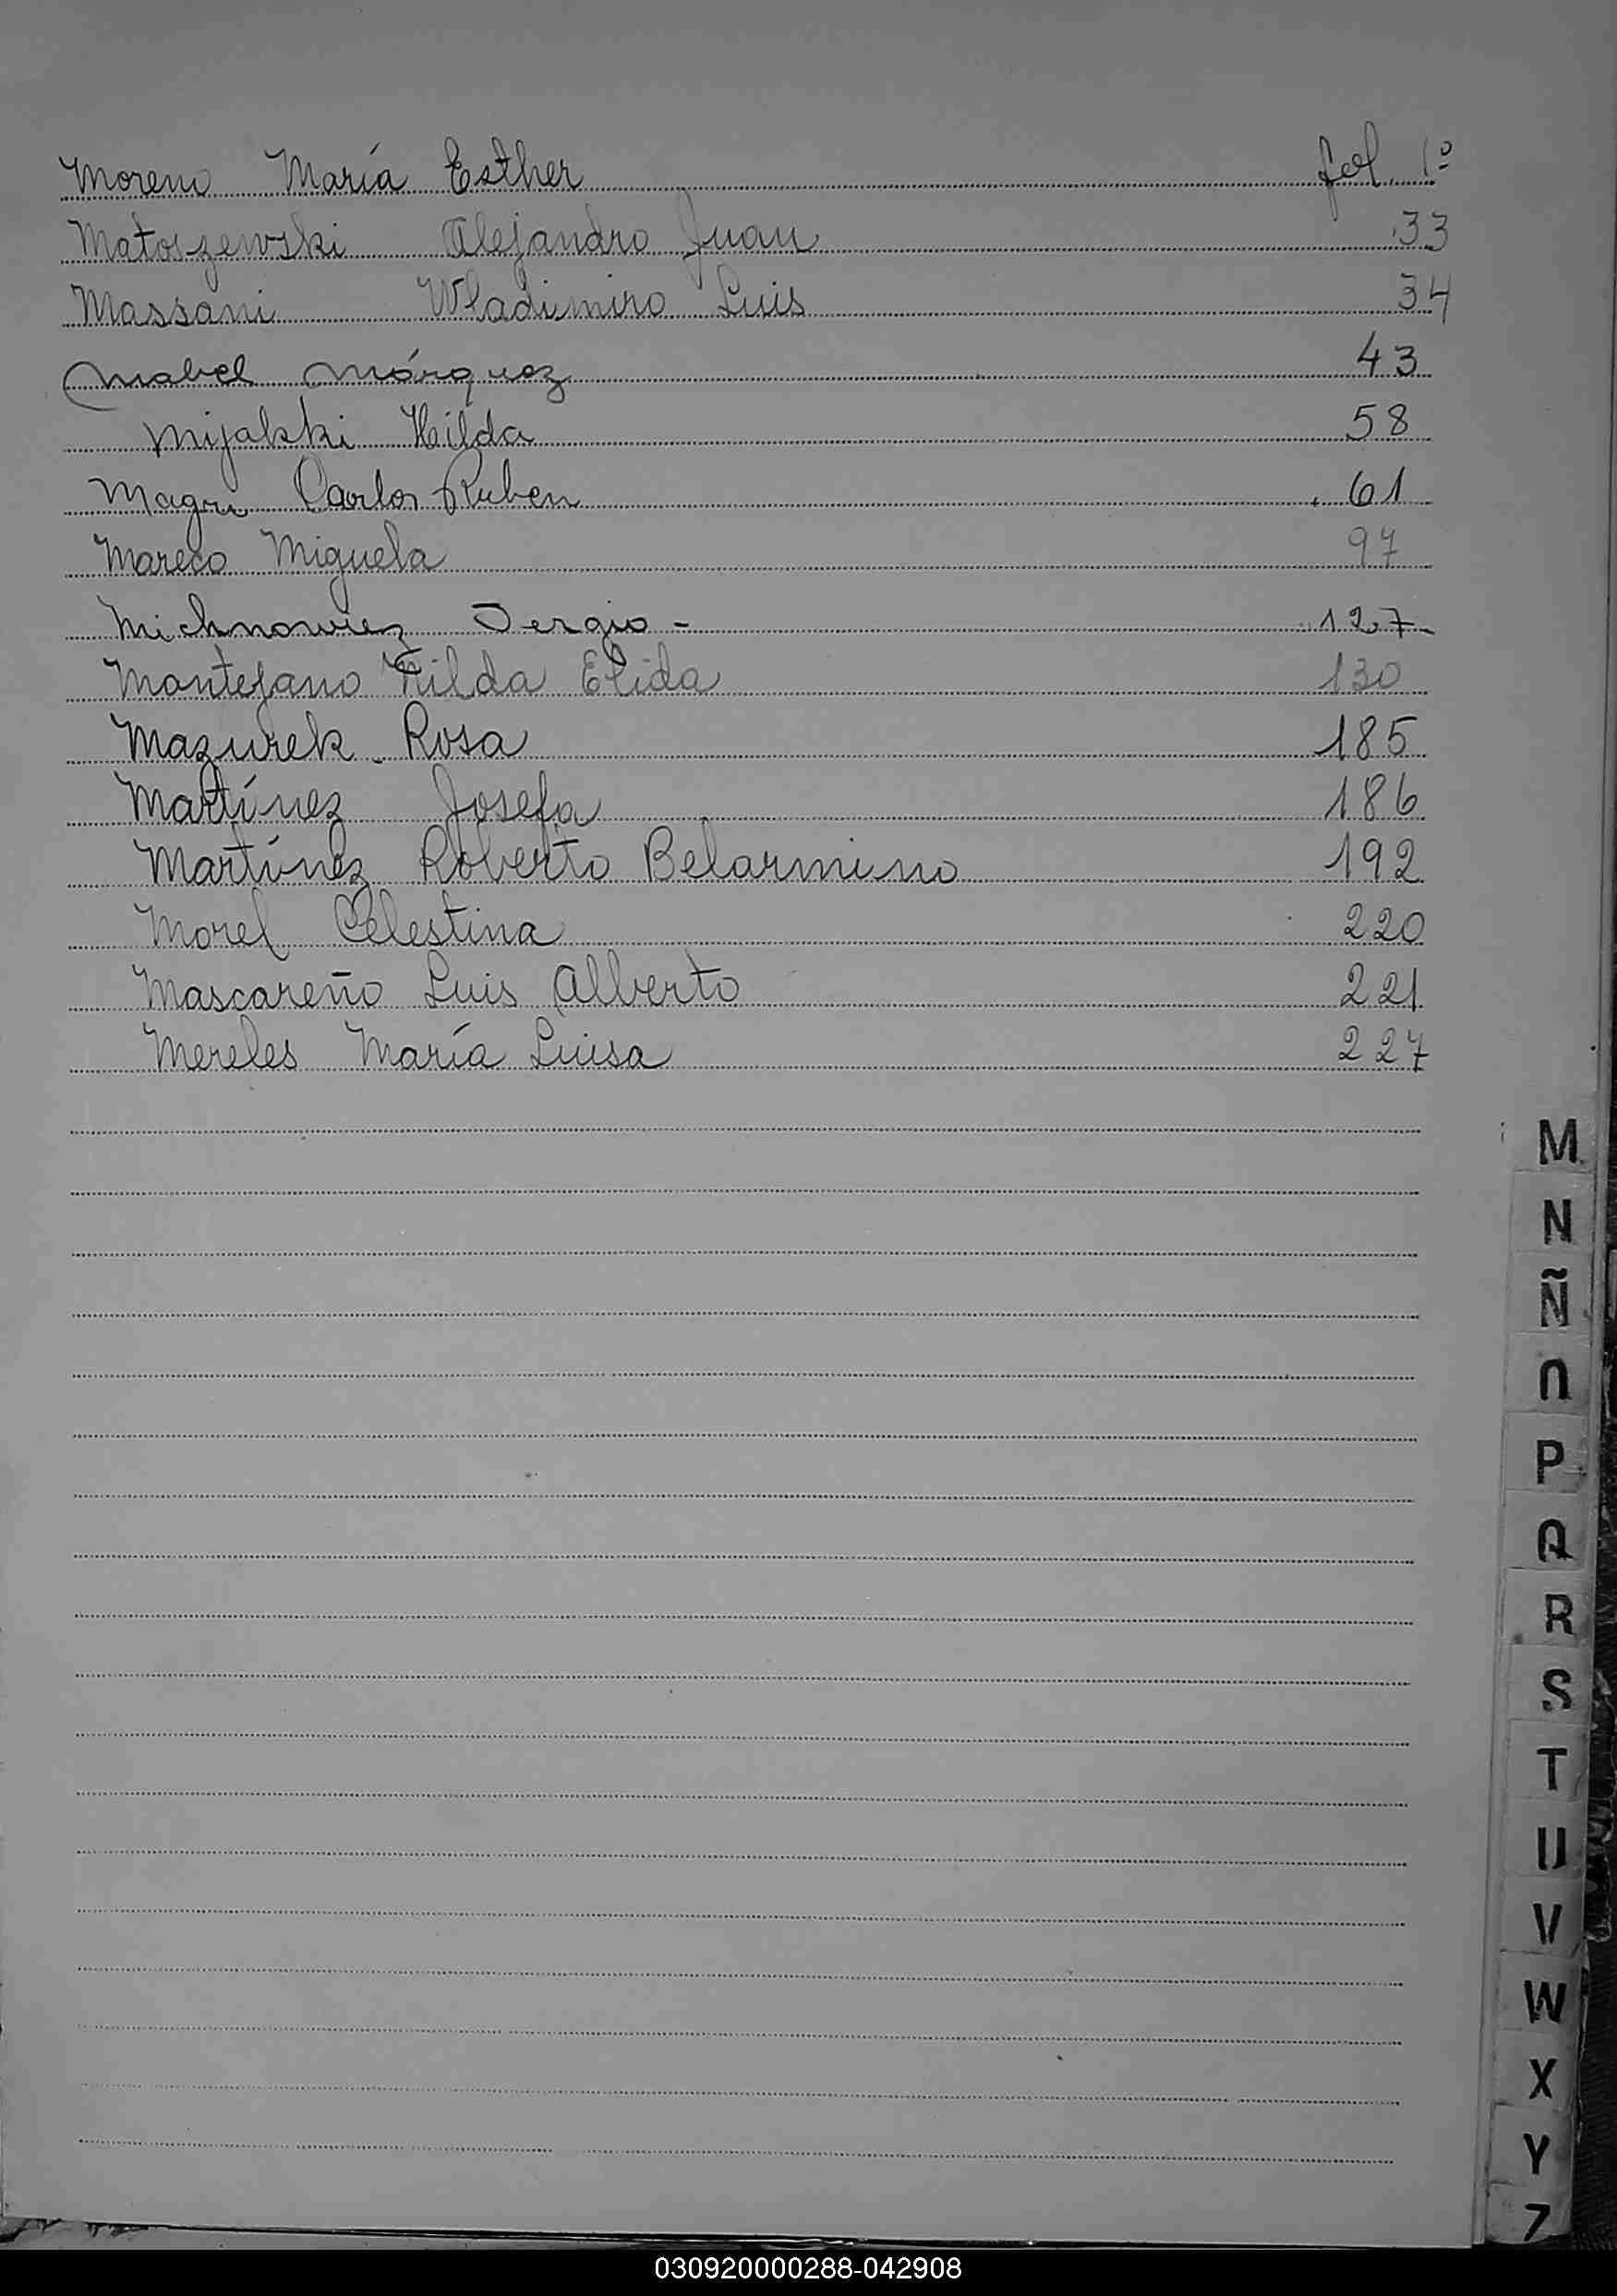 Moreno María Esther fol. 1º
Matoszewski Alejandro Juan 33
Massani Wladimiro Luis 34
Mabel Márquez 43
Mijalski Hilda 58
Magri Carlos Ruben 61
Mareco Miguela 97
Michnowiez Sergio - 127-
Montejano Hilda Elida 130
Mazurek Rosa 185
Martínez Josefa 186
Martínez Roberto Belarmino 192
Morel Celestina 220
Mascareño Luis Alberto 221
Mereles María Luisa 227
M
N
Ñ
O
P
Q
R
S
T
U
V
W
X
Y
Z
030920000288-042908